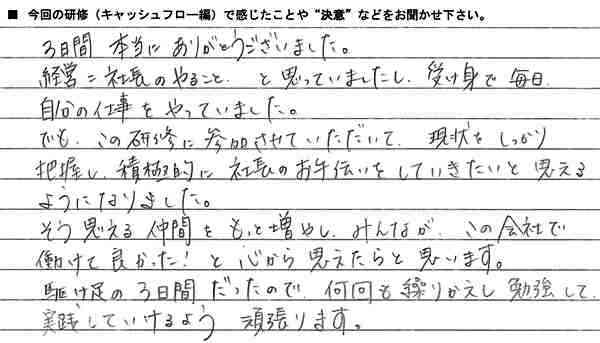 ■ 今回の研修（キャッシュフロー編）で感じたことや“決意”などをお聞かせ下さい。
3日間 本当に ありがとうございました。
経営＝社長のやること、と思っていましたし、受け身で毎日、
自分の仕事をやっていました。
でも、この研修に参加させていただいて、現状をしっかり
把握し、積極的に社長のお手伝いをしていきたいと思える
ようになりました。
そう思える仲間をもっと増やし、みんなが、この会社で
働けて良かった！と心から思えたらと思います。
駆け足の3日間だったので、何回も繰りかえし勉強して、
実践していけるよう 頑張ります。